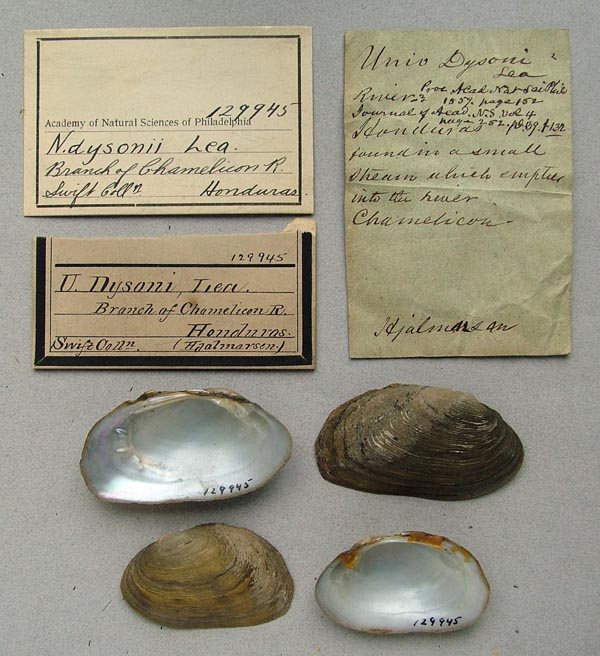 129945
Academy of Natural Sciences of Philadelphia
N. dysonii Lea.
Branch of Chamelicon R.
Swift Colln Honduras.
129945
U. Dysoni, Lea.
Branch of Chamelicon R.
Honduras.
Swift Colln. (Hjalmarsen.)
Unio Dysoni
Lea
River Proc Acad. Nat Sci Phila
1857, page 102
Journal of Acad. N.S. Vol. 4
Honduras page 252. pl. 39. f 132
found in a small
stream which empties
into the river
Chamelicon.
Hjalmarsan
129945
129945